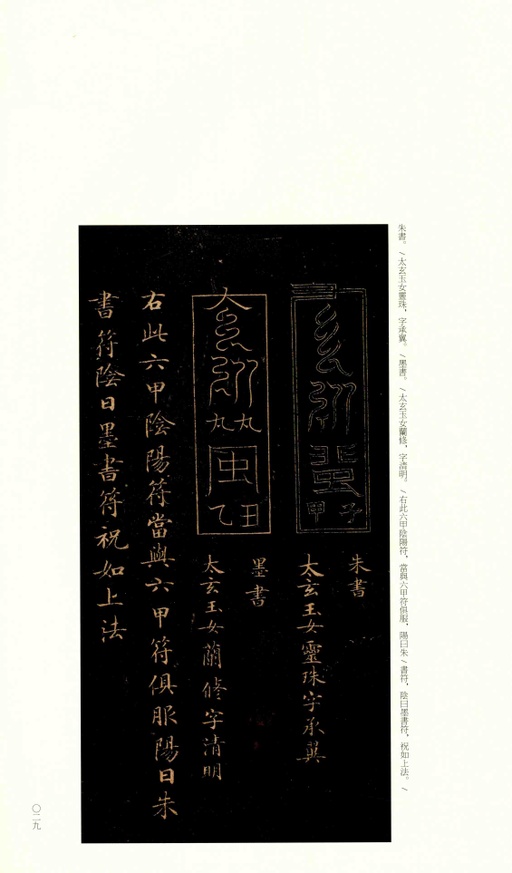 朱書。/太玄玉女靈珠，字承翼。/墨書。/太玄玉女蘭修，字清明。/右此六甲陰陽符，當與六甲符俱服，陽日朱/書符，陰日墨書符，祝如上法。/
子
甲
朱書
太玄玉女靈珠字承翼
丑
乙
墨書
太玄玉女蘭修字清明
右此六甲陰陽符當與六甲符俱服陽日朱
書符陰日墨書符祝如上法
〇二九